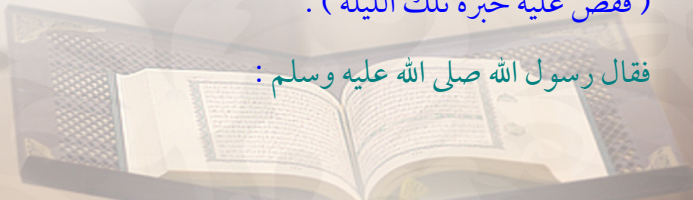 ( فقص عليه خبره تلك الليلة ) .
فقال رسول الله صلى الله عليه وسلم :